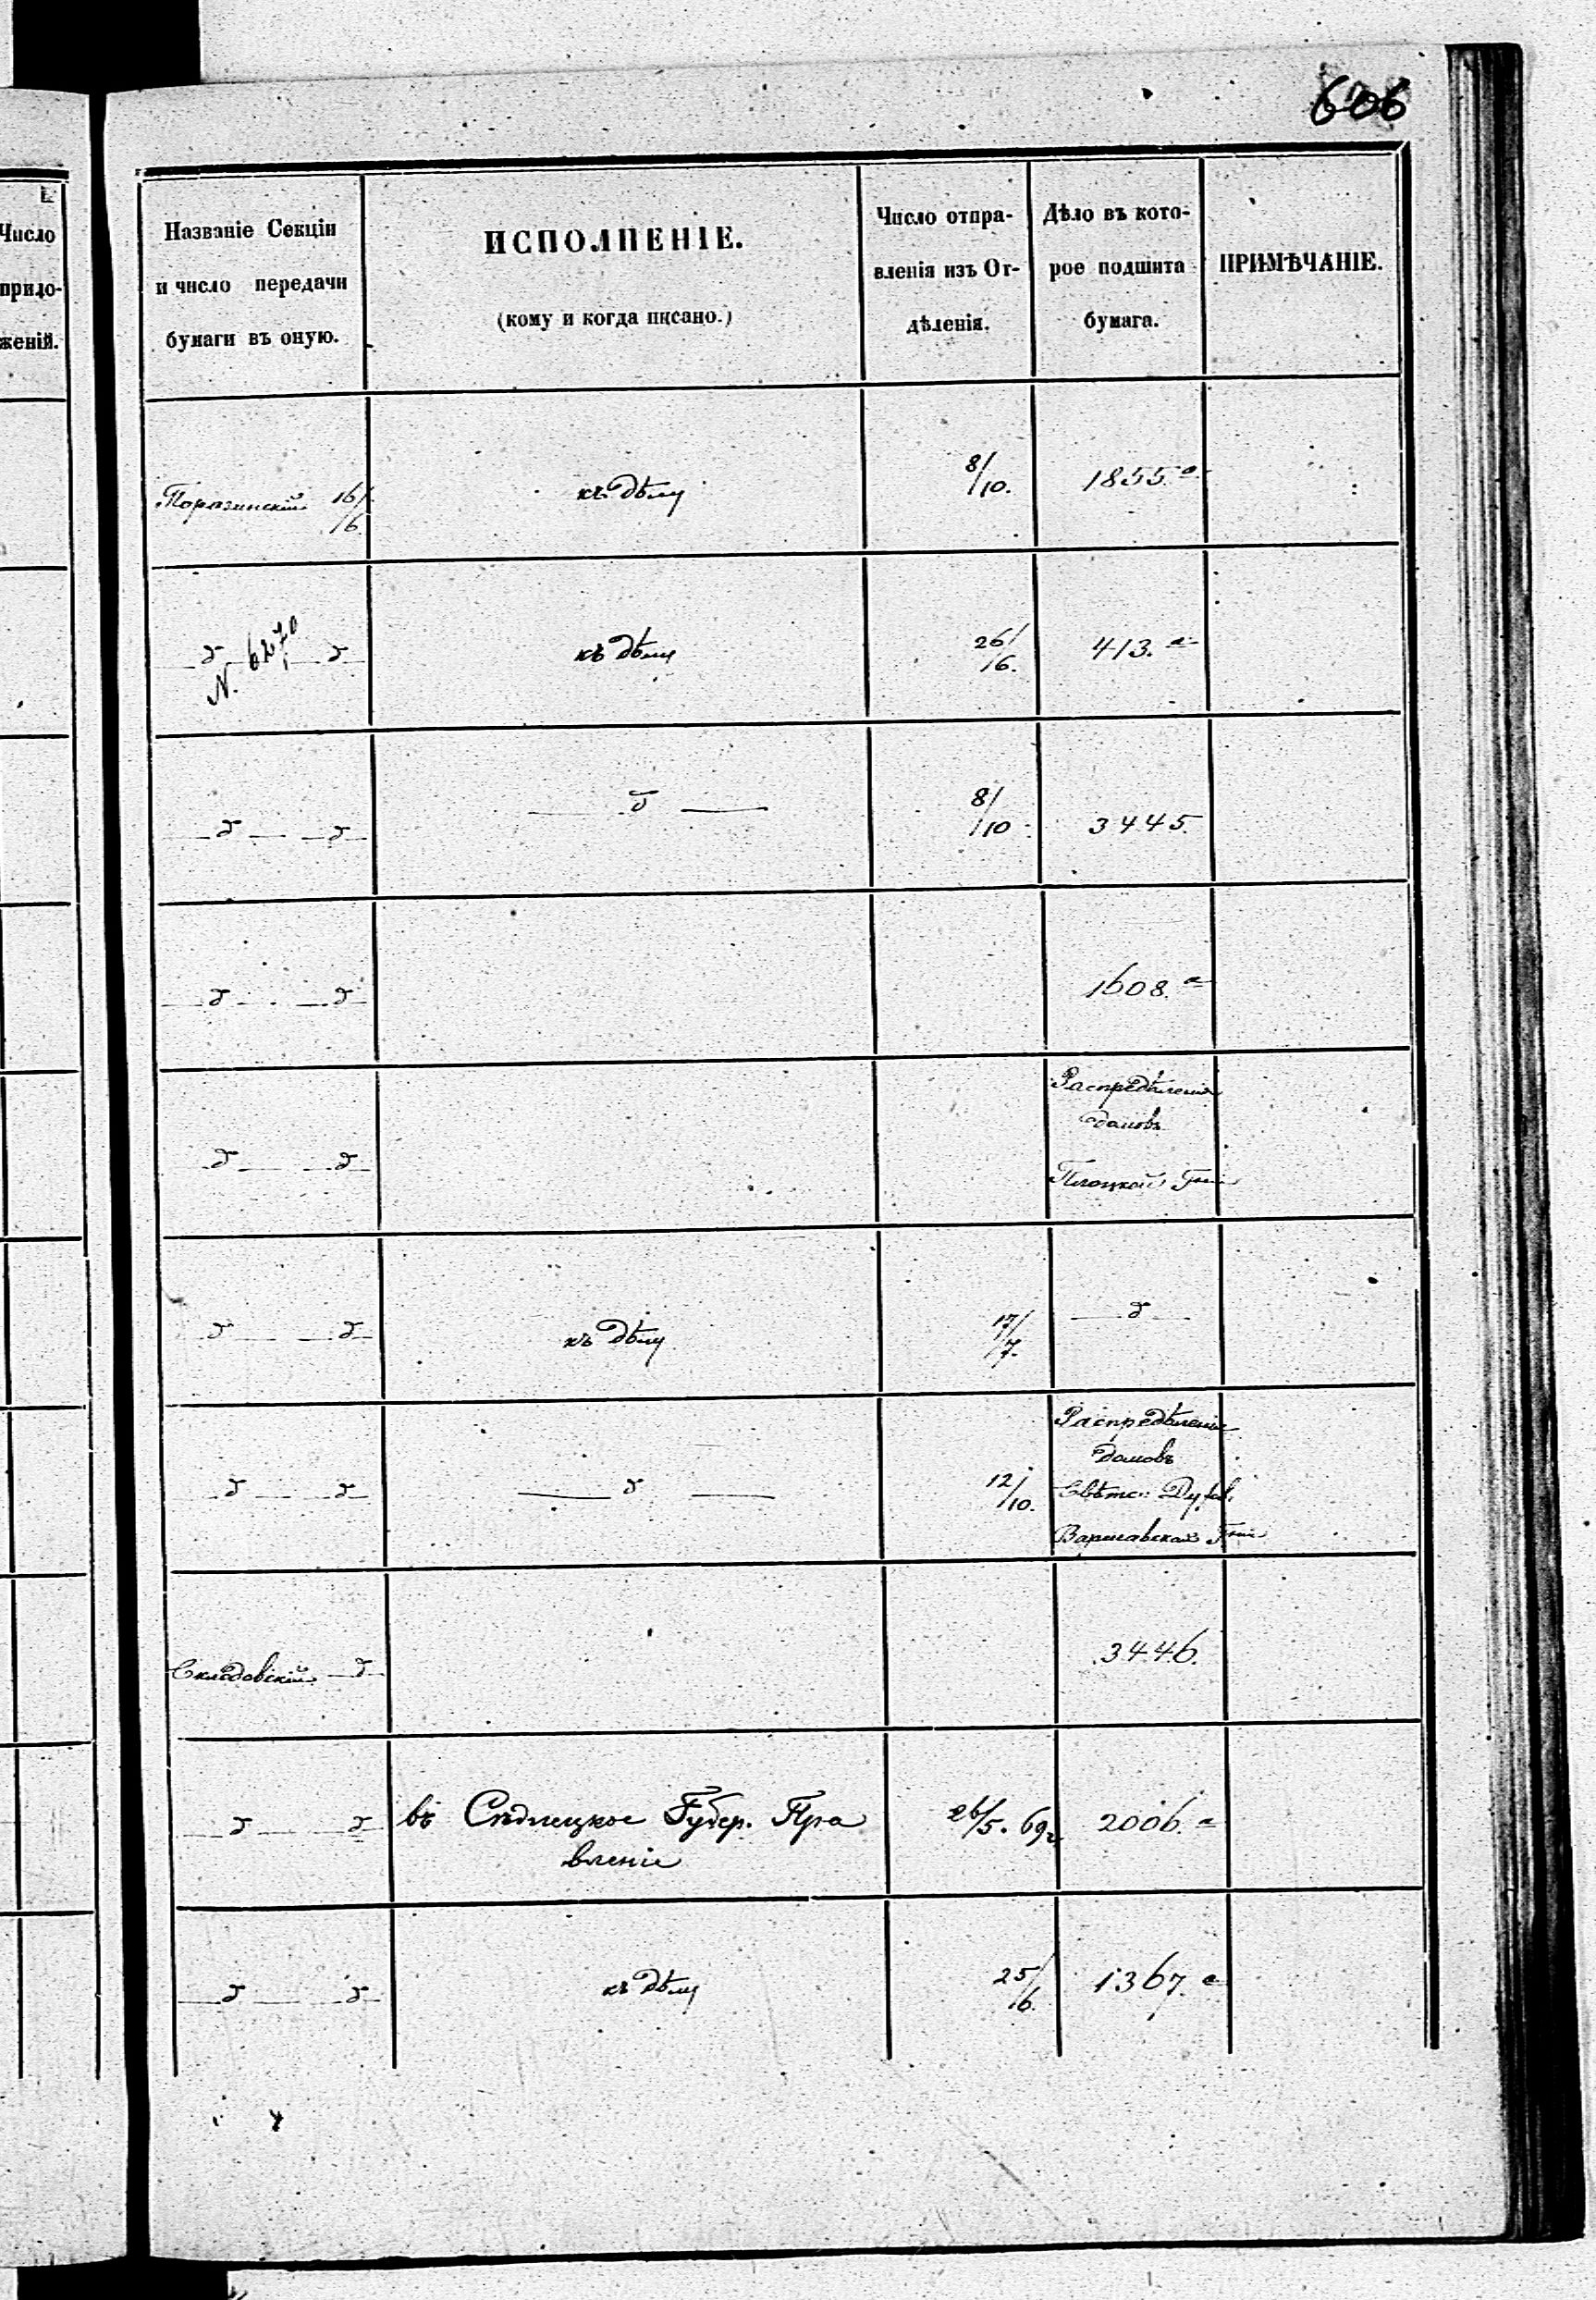 606
Число
прило-
женій.
Названіе Секціи
и число передачи
бумаги въ оную.
ИСПОЛНЕНІЕ.
(кому и когда писано.)
Число отпра-
вленія изъ От-
дѣленія.
Дѣло въ кото-
рое подшита
бумага.
ПРИМѢЧАНІЕ.
16/6 къ дѣлу 8/10. 1855.а
N. 6270 къ дѣлу 26/6. 413.а
8/10 3445.
1608.а
Распредѣленія
домовъ
Плоцкой Гніи
къ дѣлу 17/7.
12/10.
Распредѣленіе
домовъ
Свѣтс: Дух.
Варшавской Гніи
Складовскій 3446.
въ Сѣдлецкое Губер. Пра
вленіе
26/5. 69г. 2006.а
къ дѣлу 25/6. 1367.а